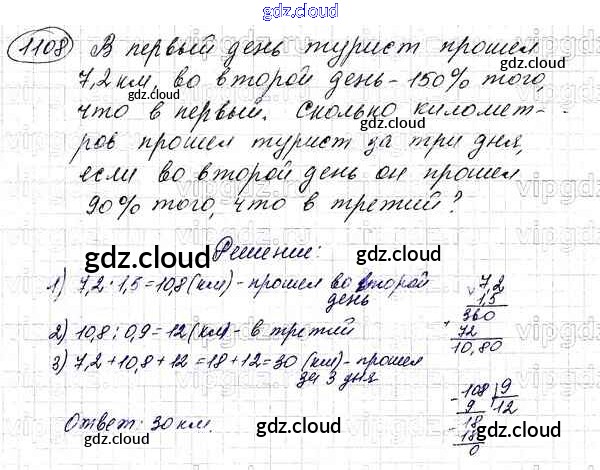 gdz.cloud
1108 В первый день турист прошел
7,2 км, во второй день - 150% того,
что в первый. Сколько километ-
ров прошел турист за три дня,
если во второй день он прошел
90% того, что в третий?
Решение:
1) 7,2 · 1,5 = 10,8 (км) - прошел во второй
день
2) 10,8 : 0,9 = 12 (км) - в третий
3) 7,2 + 10,8 + 12 = 18 + 12 = 30 (км) - прошел
за 3 дня
Ответ: 30 км.
7,2
1,5
360
+ 72
10,80
- 108 9
9 12
- 18
18
0
gdz.cloud
gdz.cloud
gdz.cloud
gdz.cloud
gdz.cloud
gdz.cloud
gdz.cloud
gdz.cloud
gdz.cloud
gdz.cloud